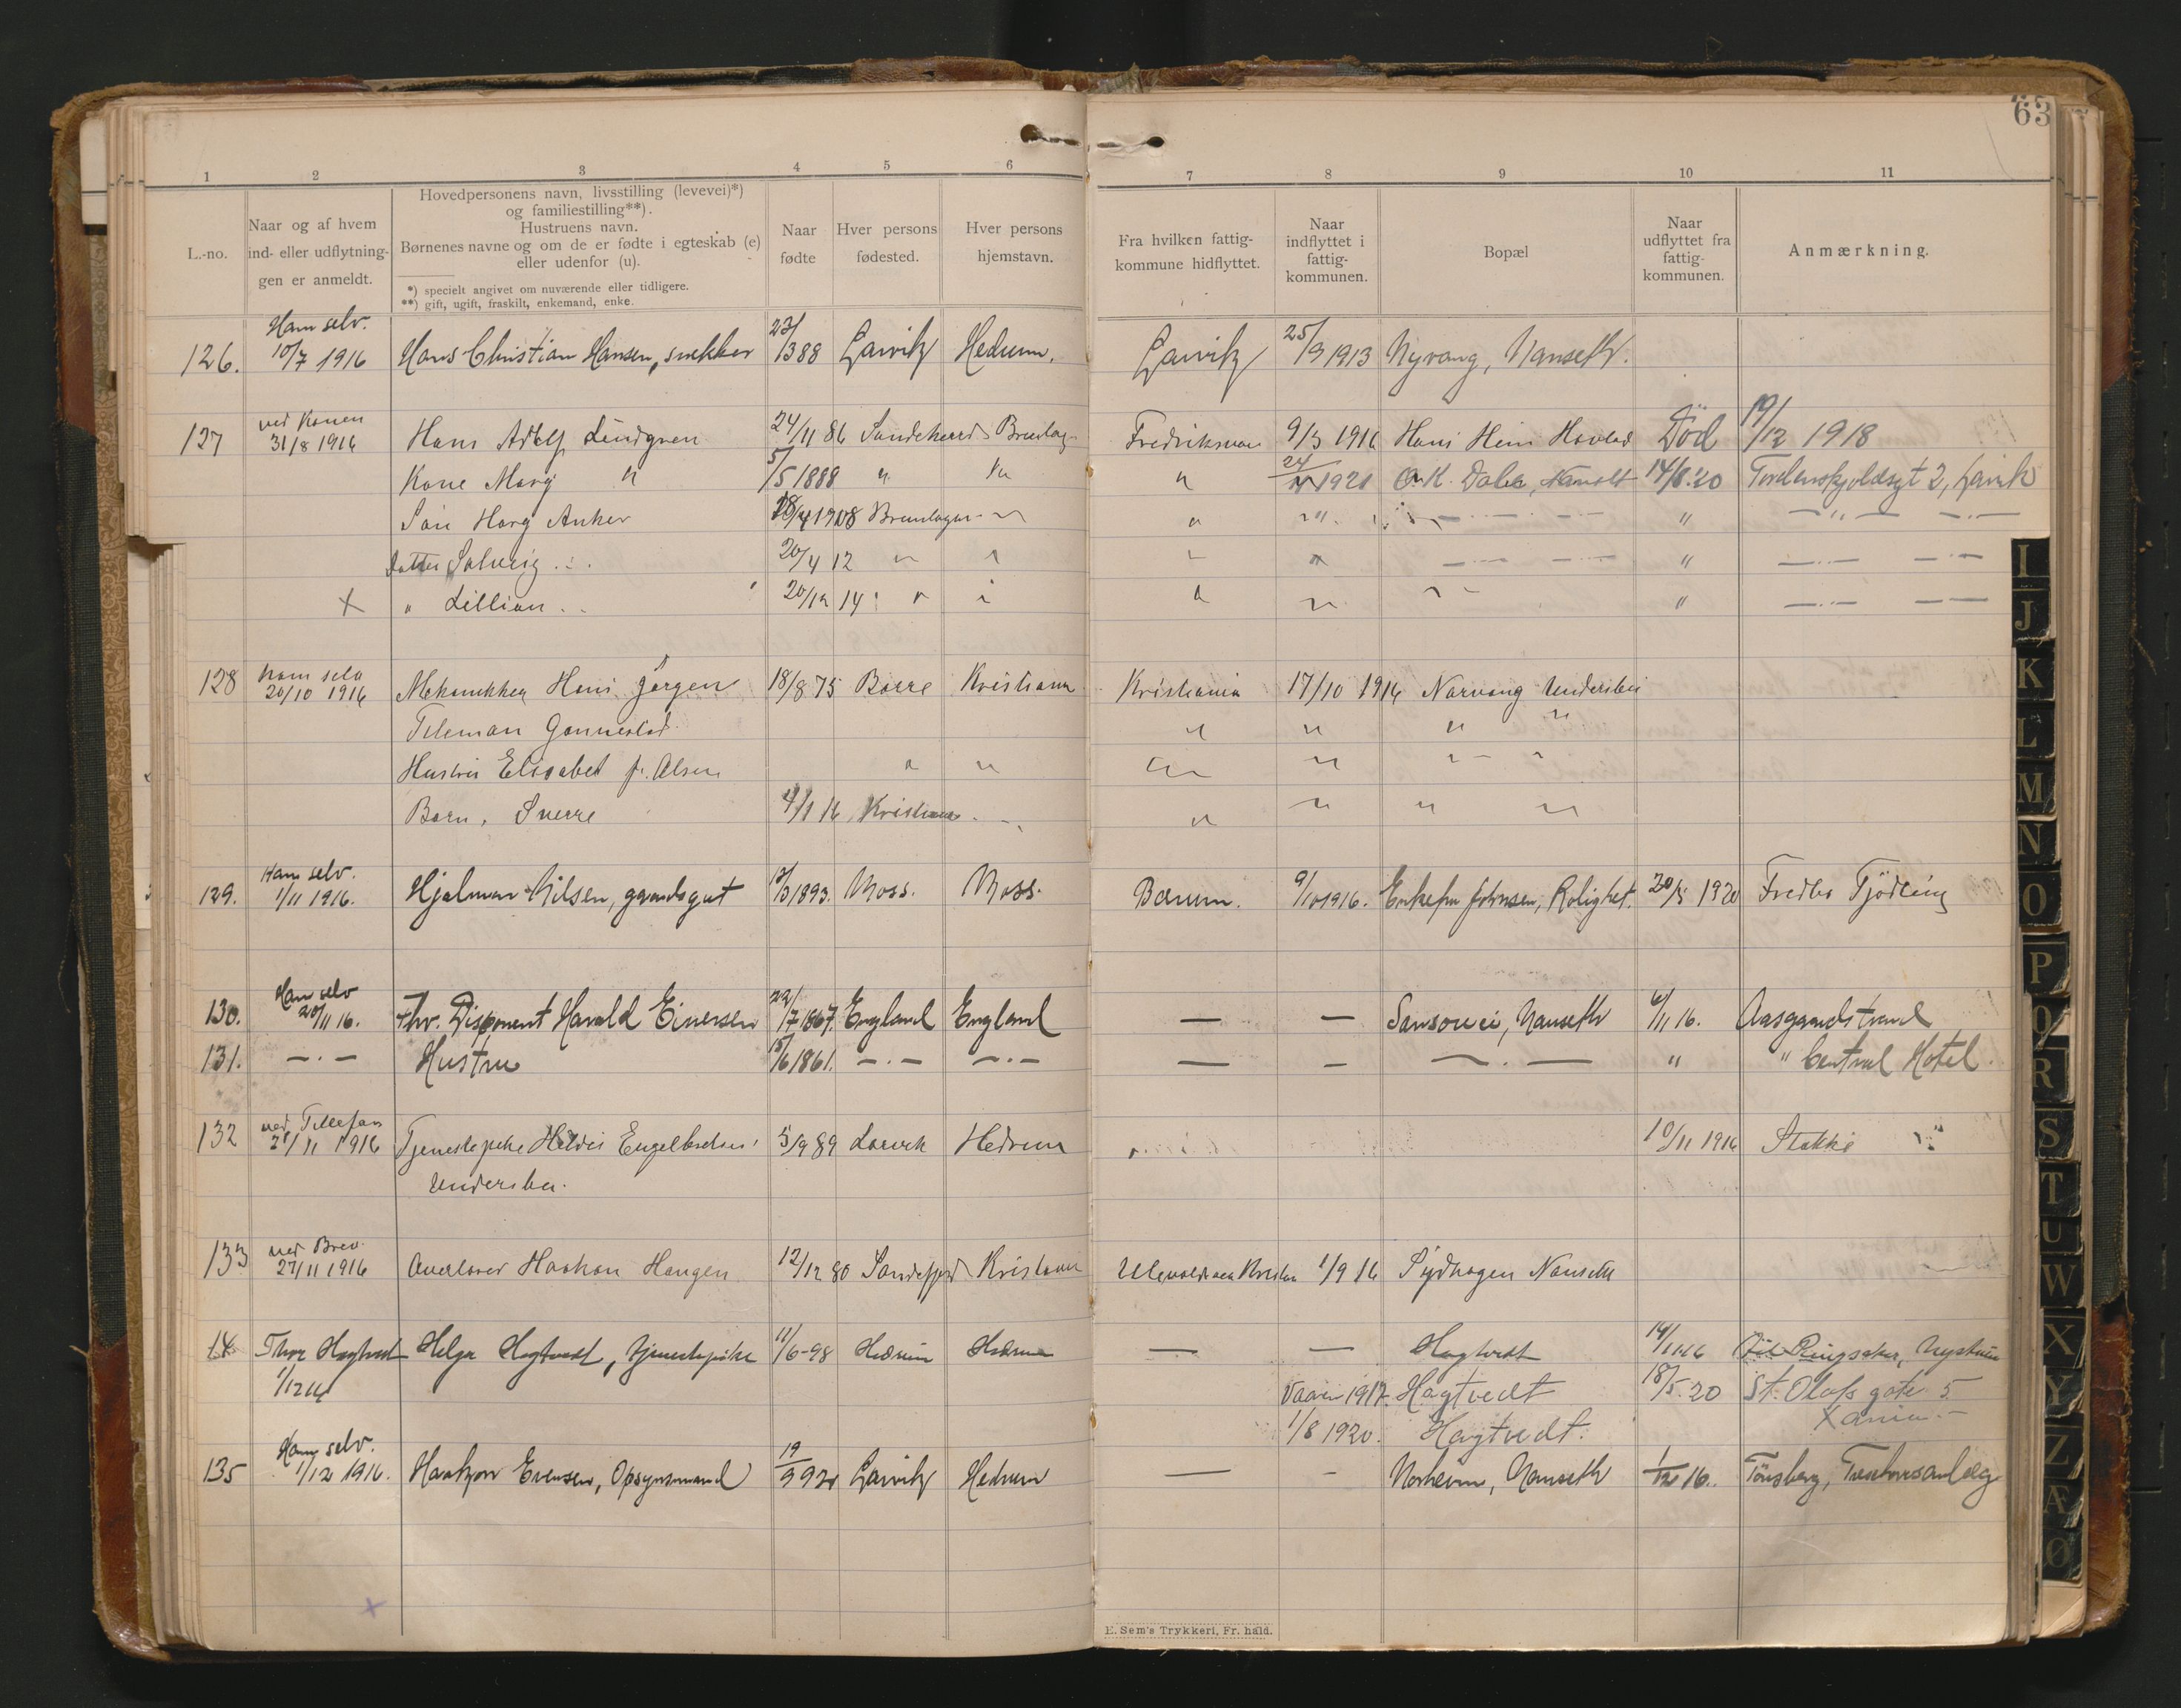 63
1 2 3 4 5 6 7 8 9 10 11
L.-no.
Naar og af hvem
ind- eller udflytnin-
gen er anmeldt.
Hovedpersonens navn, livsstilling (levevei)*)
og familiestilling**).
Hustruens navn.
Børnenes navne og om de er fødte i egteskab (e)
eller udenfor (u).
*) specielt angivet om nuværende eller tidligere.
**) gift, ugift, fraskilt, enkemand, enke.
Naar
fødte
Hver persons
fødested.
Hver persons
hjemstavn.
Fra hvilken fattig-
kommune hidflyttet.
Naar
indflyttet i
fattig-
kommunen.
Bopæl
Naar
udflyttet fra
fattig-
kommunen.
Anmærkning.
Ham selv.
126. 10/7 1916 Hans Christian Hansen, snekker 23/13 88 Larvik Hedrum. Larvik 25/9 1913 Nyvang, Nanseth.
ved Konen
127 31/8 1916 Hans Adolf Lindgren 24/11 86 Sandeherred Brunlag Fredriksværn 9/3 1916 Hans Hovland Död 19/12 1918
Kone Marg " 5/5 1888 " " " 24/ 1920 Dale, 14/8 '20 Tordenskjoldsgt 2, Larvik
Sön Harg Anker 18/4 1908 Brunlagn " " " " -"- -"-
Datter Solveig 20/4 12 " " " " " -"- -"-
x " Lillian 20/12 14 " " " " " -"- -"-
ham selv
128 20/10 1916 Mekanikker Hans Jørgen 18/8 75 Borre Kristiania Kristiania 17/10 1916 Narvang Undersbo
Tileman Gannestad " " " "
Hustru Elisabet f. Olsen " " " " " "
Barn, Sverre 4/1 16 Kristiania " " " " "
Ham selv.
129. 1/11 1916. Hjalmar Nilsen, gaardsgut 1893. Moss. Moss. Bærum. 9/10 1916. Enkefru Johnsen, Rolighet. 20/5 1920 Fredbo Tjödling
Ham selv
130. 20/11 16. Fhv. Disponent Harald Einersen 22/7 1867. England England — — Sansouci, Nanseth 6/11 16. Aasgaardstrand
131. —·— Hustru 15/6 1861. —·— —·— — — —·— " " Central Hotel.
ved Tellefon
132 28/11 1916 Tjenestepike Heldis Engelbretsen 3/9 89 Larvik Hedrum 10/11 1916 Stokke
Undersbo.
ved Brev.
133 27/11 1916 Haakon Haugen 12/12 80 Sandefjord Kristiania 1/9 16 Sydhagen Nanseth
14 Thor Hagtvedt Helga Hagtvedt, tjenestepike 11/6-98 Hedrum Hedrum — — Hagtvedt 14/11 16 Ringsaker,
1/12 16 Vaaren 1917. Hagtvedt 18/5.20 St. Olafs gate 5
1/8 1920. Hagtvedt. Xania.-
Ham selv.
135 1/12 1916. Haakon Evensen, Opsynsmand 19/9 92 Larvik Hedrum — - Norheim, Nanseth 1/12 16. Tönsberg,
E. Sem's Trykkeri, Fr. hald.
I
J
K
L
M
N
O
P
Q
R
S
T
U
W
X
Y
Z
Æ
Ø